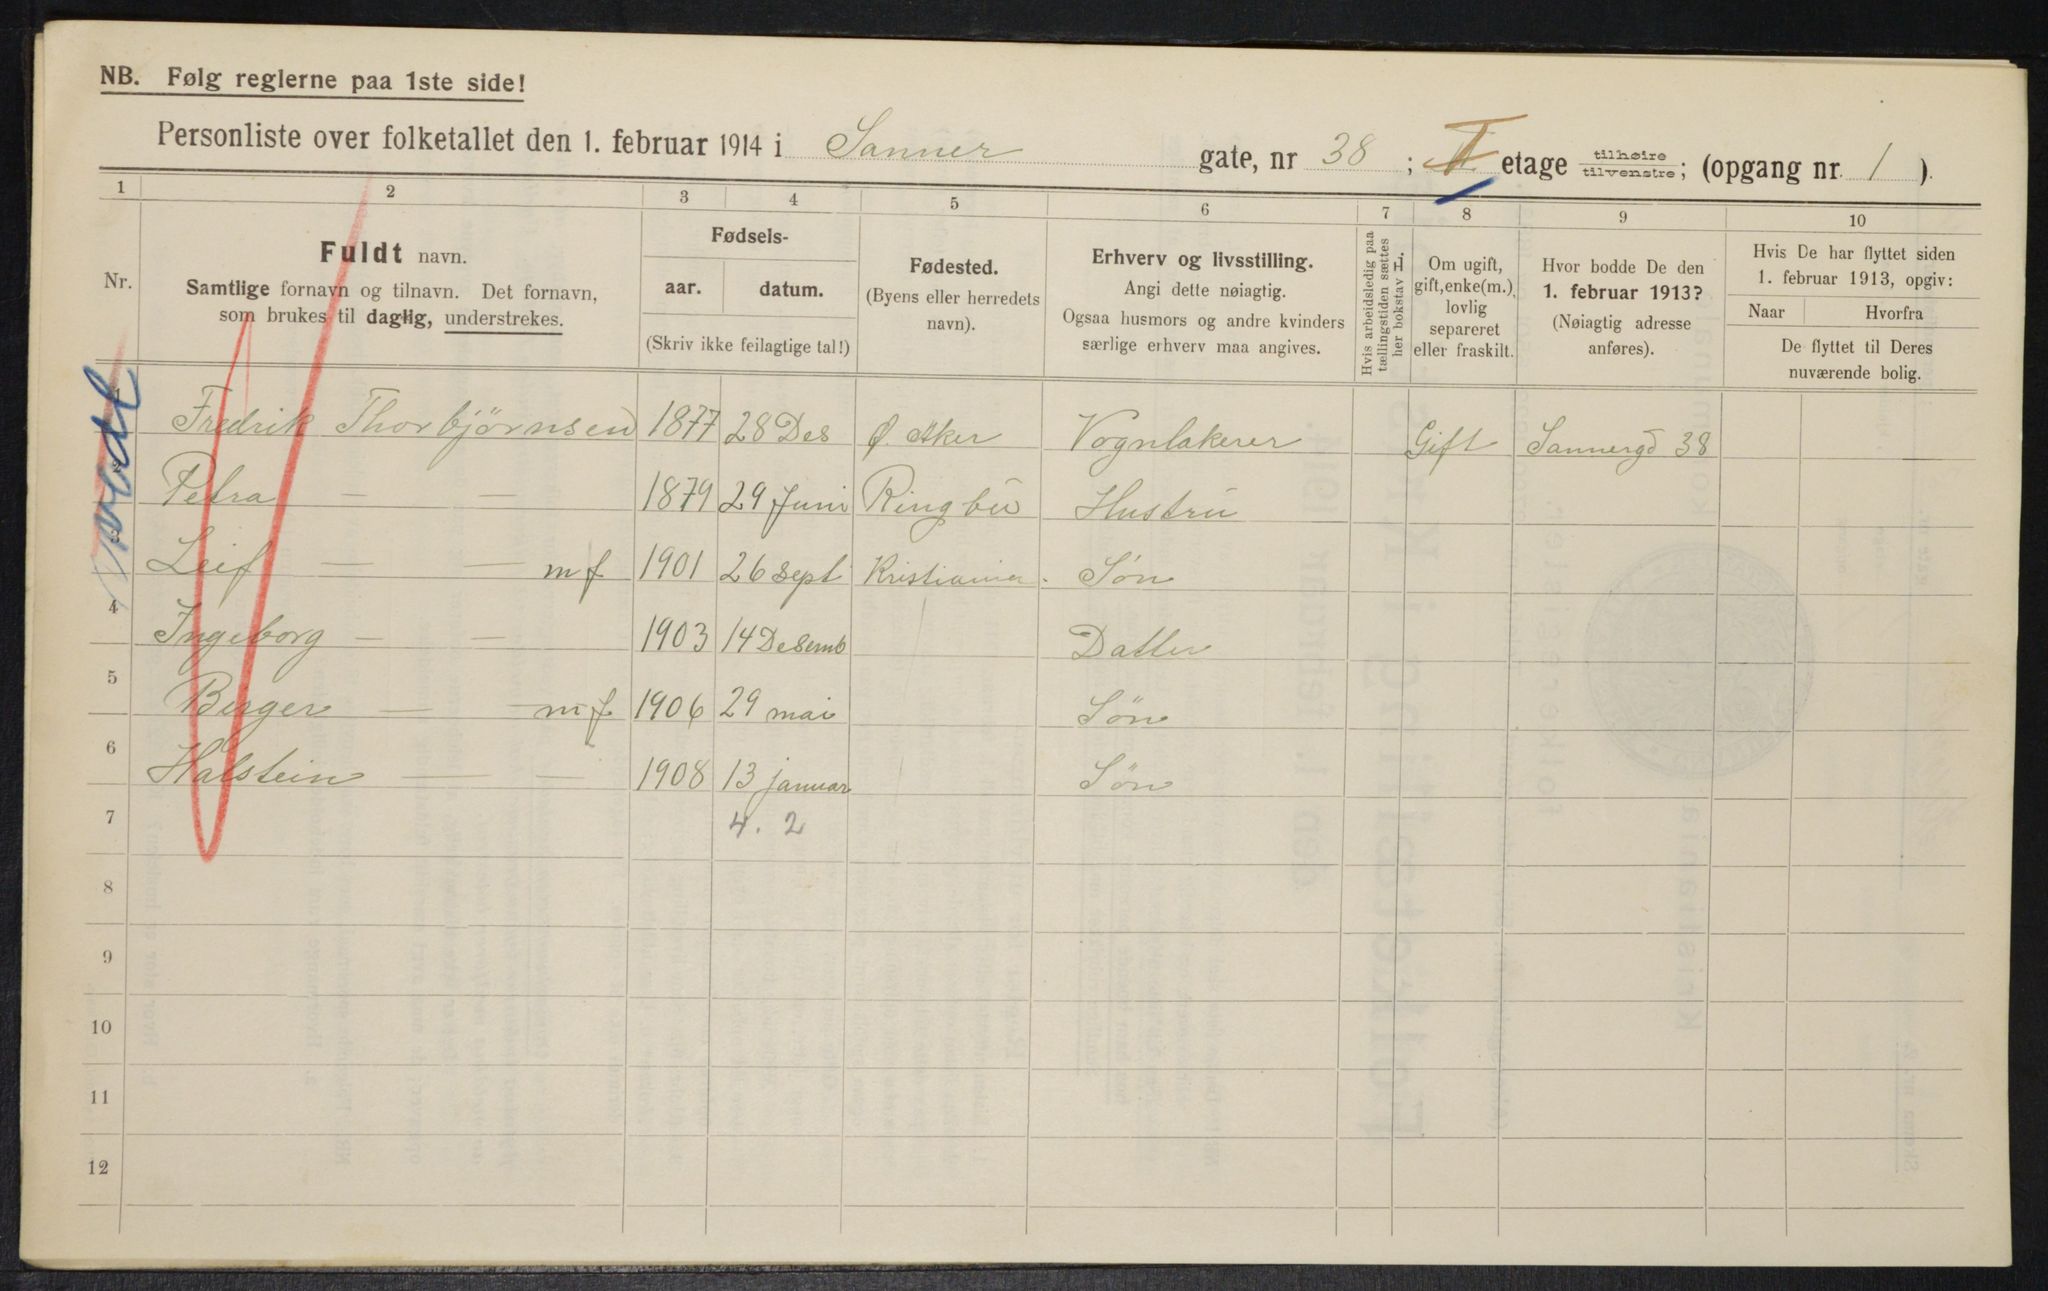 NB. Følg reglerne paa 1ste side!
Personliste over folketallet den 1. februar 1914 i Sanner gate, nr 38 ; II etage tilhøire tilvenstre; (opgang nr. 1 ).
1 2 3 4 5 6 7 8 9 10
Nr.
Fuldt navn.
Samtlige fornavn og tilnavn. Det fornavn,
som brukes til daglig, understrekes.
Fødsels-
aar. datum.
(Skriv ikke feilagtige tal!)
Fødested.
(Byens eller herredets
navn).
Erhverv og livsstilling.
Angi dette nøiagtig.
Ogsaa husmors og andre kvinders
særlige erhverv maa angives.
Hvis arbeidsledig paa
tællingstiden sættes
her bokstav L.
Om ugift,
gift, enke(m.),
lovlig
separeret
eller fraskilt.
Hvor bodde De den
1. februar 1913?
(Nøiagtig adresse
anføres).
Hvis De har flyttet siden
1. februar 1913, opgiv:
Naar Hvorfra
De flyttet til Deres
nuværende bolig.
1 Fredrik Thorbjørnsen 1877 28 Des Ø. Aker Vognlakerer Gift Sannergd 38
2 Petra — — 1879 29 Juni Ringbu Hustru
3 Leif — — mf 1901 26 sept Kristiania. Søn
4 Ingeborg — — 1903 14 Desemb Datter
5 Birger — — mf 1906 29 mai Søn
6 Halstein — — 1908 13 januar Søn
7 4. 2
8
9
10
11
12